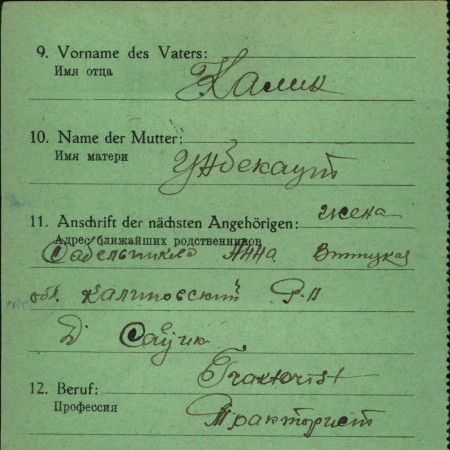 9. Vorname des Vaters:
Имя отца
Калик
10. Name der Mutter:
Имя матери
Унбекаут
11. Anschrift der nächsten Angehörigen: жена
Адрес ближайших родственников
Сабельникова Анна
обл. Калиновский Р-н
Д.
Traktorist
12. Beruf:
Профессия
Тракторист